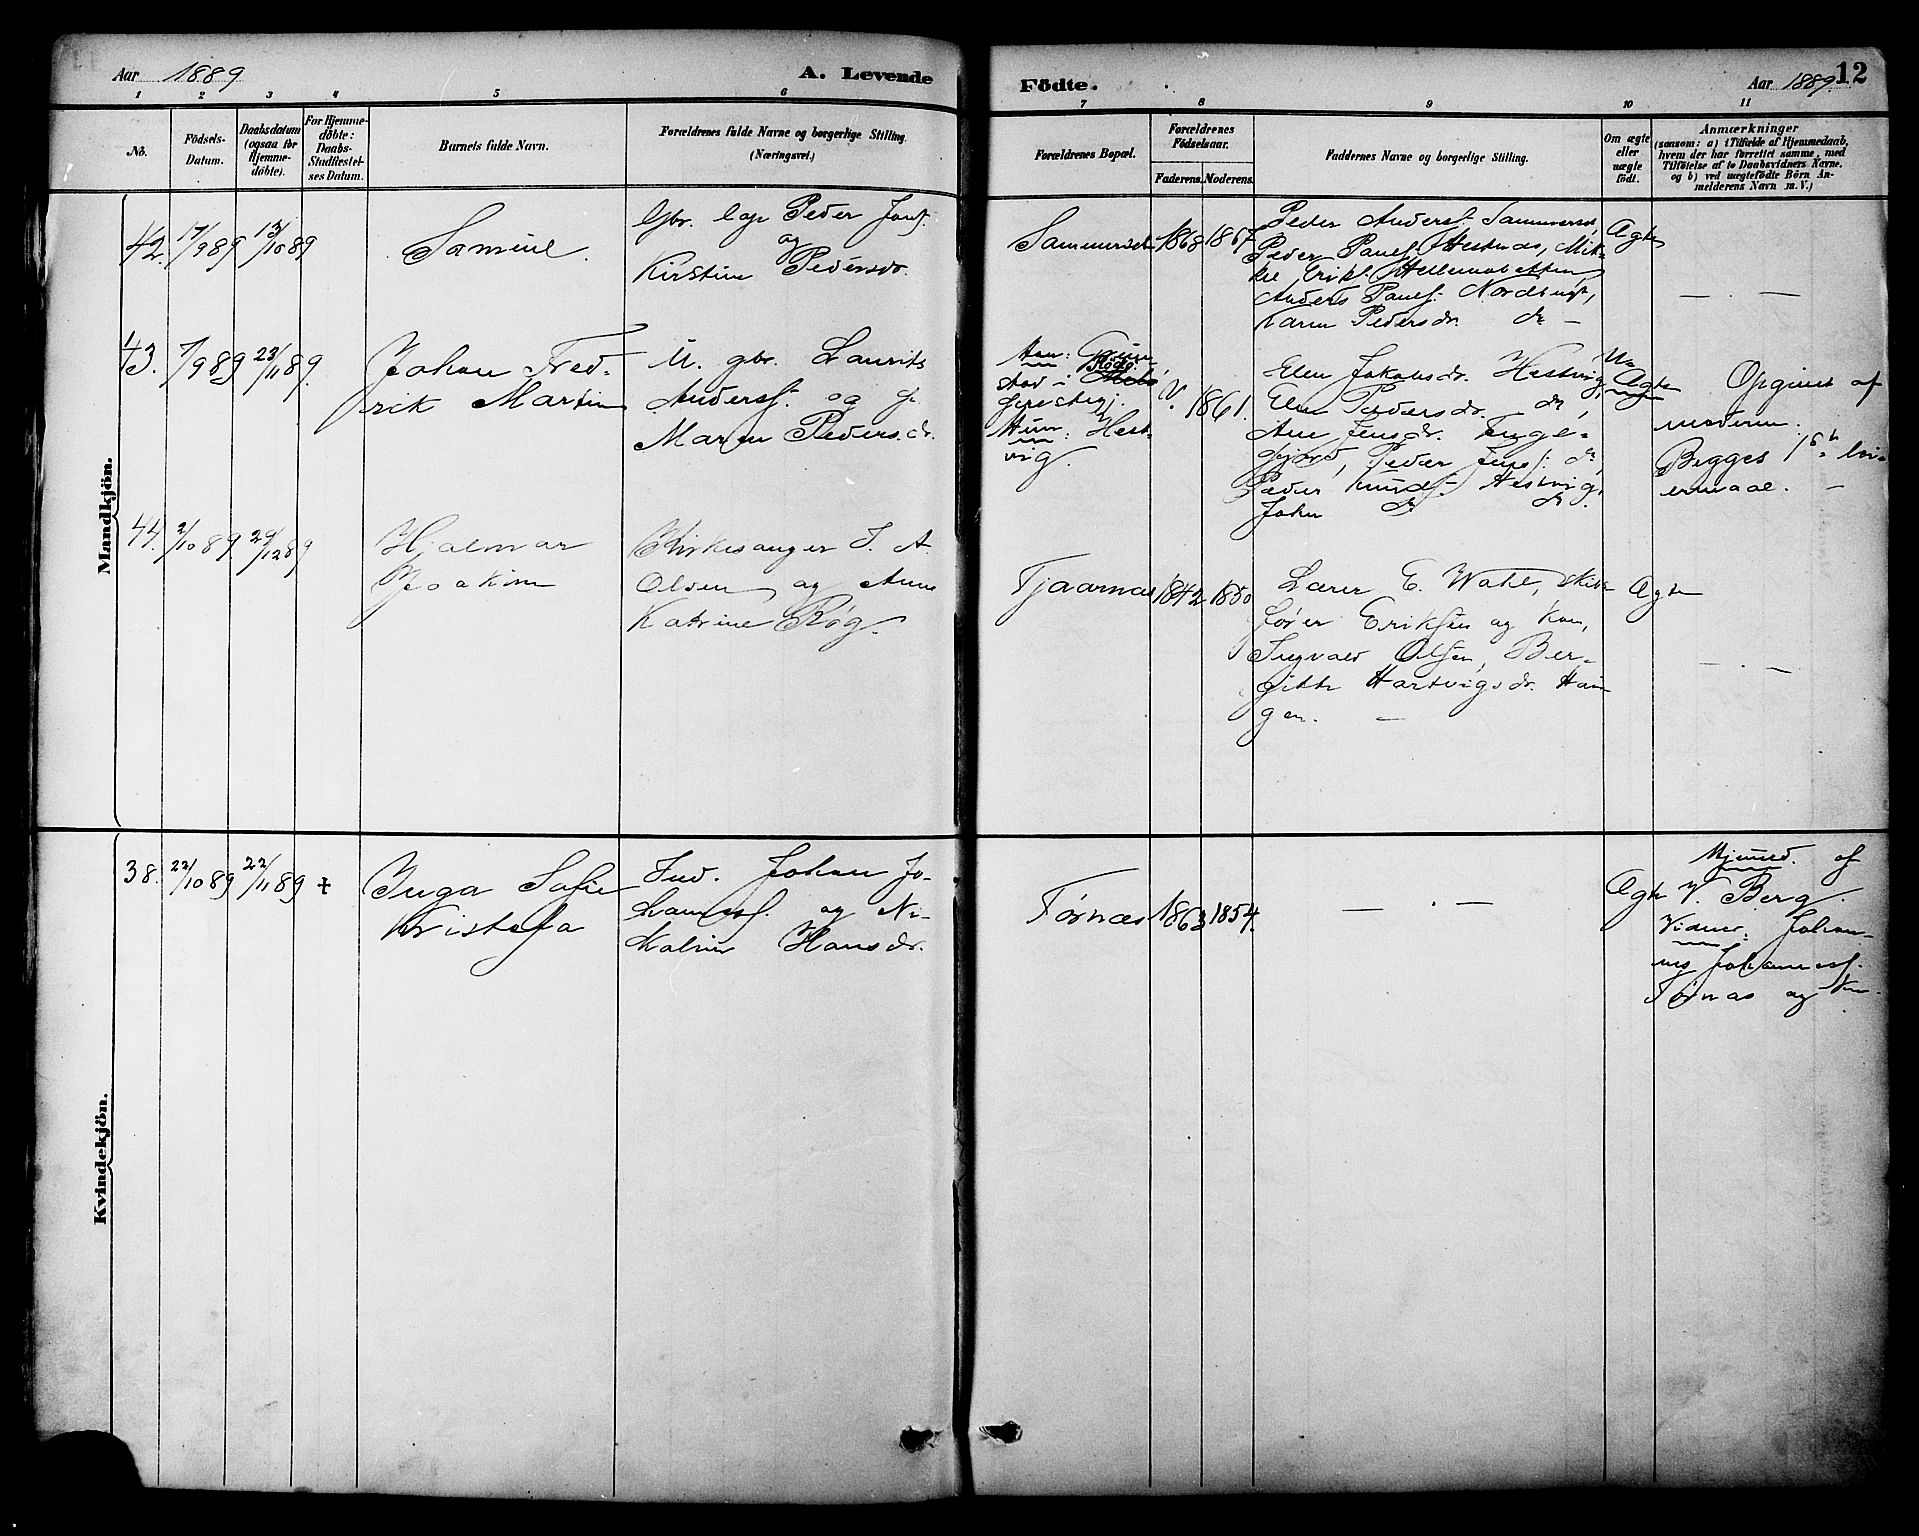 Aar 1889
A. Levende
Födte.
Aar 1889.
12
1 2 3 4 5 6 7 8 9 10 11
No.
Födsels-
Datum.
Daabsdatum
(ogsaa for
Hjemme-
döbte).
For Hjemme-
döbte:
Daabs-
Stadfæstel-
ses Datum.
Barnets fulde Navn.
Forældrenes fulde Navne og borgerlige Stilling.
(Næringsvei.)
Forældrenes Bopæl.
Forældrenes
Födselsaar.
Faderens. Moderens.
Faddernes Navne og borgerlige Stilling.
Om ægte
eller
uægte
födt.
Anmærkninger
(saasom: a) i Tilfælde af Hjemmedaab,
hvem der har forrettet samme, med
Tilföielse af to Daabsvidners Navne.
og b) ved uægtefödte Börn An-
melderens Navn m.V.)
Mandkjön.
42. 17/9 89 13/10 89
Samine
Gbr. Lap Peder Jonss.
og
Kirstine Pedersdr.
Sammerset 1868 1867
Peder Anderss. Sammerset,
Peder Paulss. Hestnæs, Mik-
kel Eriks.
Anders Pauls. Nordbugt,
Karen Pedersdr. do —
Ægte
— . —
43. 7/9 89 23/11 89.
Johan Fred-
rik Martin
U. gbr. Laurits
Anderss. og p.
Maren Pedersdr.
Han:
stad i Bodø
præstegj.
Hun: Hest-
vig.
V. 1861.
Elen Jakobsdr. Hestvig,
Elen Pedersdr. do,
Ane Jensdr. Tenge-
fjord, Peder Jenss. do,
Peder Knuds. Hestvig,
John do do.
Uægte
Opgivet af
moderen.
Begges 1ste lei-
ermaal. —
44. 2/10 89. 29/12 89
Hjalmar
Joakim
Kirkesanger J. A.
Olsen og Anne
Katrine Røg.
Tjaarnæs 1842 1850
Lærer E. Wahl, skibs-
fører Eriksen og Kone,
Ingvald Olsen, Ber-
gitte Hartvigsdr. Hau-
gen. —
Ægte
— . —
Kvindekjön.
38. 22/10 89 22/11 89 +
Inga Sofie
Kristefa
Ind. Johan Jo-
hanness. og Ni-
koline Hansdr.
Tørnæs 1863 1854.
— . —
Ægte
Hjemmed. af
V. Berg.
Vidner: Johan-
nes Johanness.
Tørnæs og